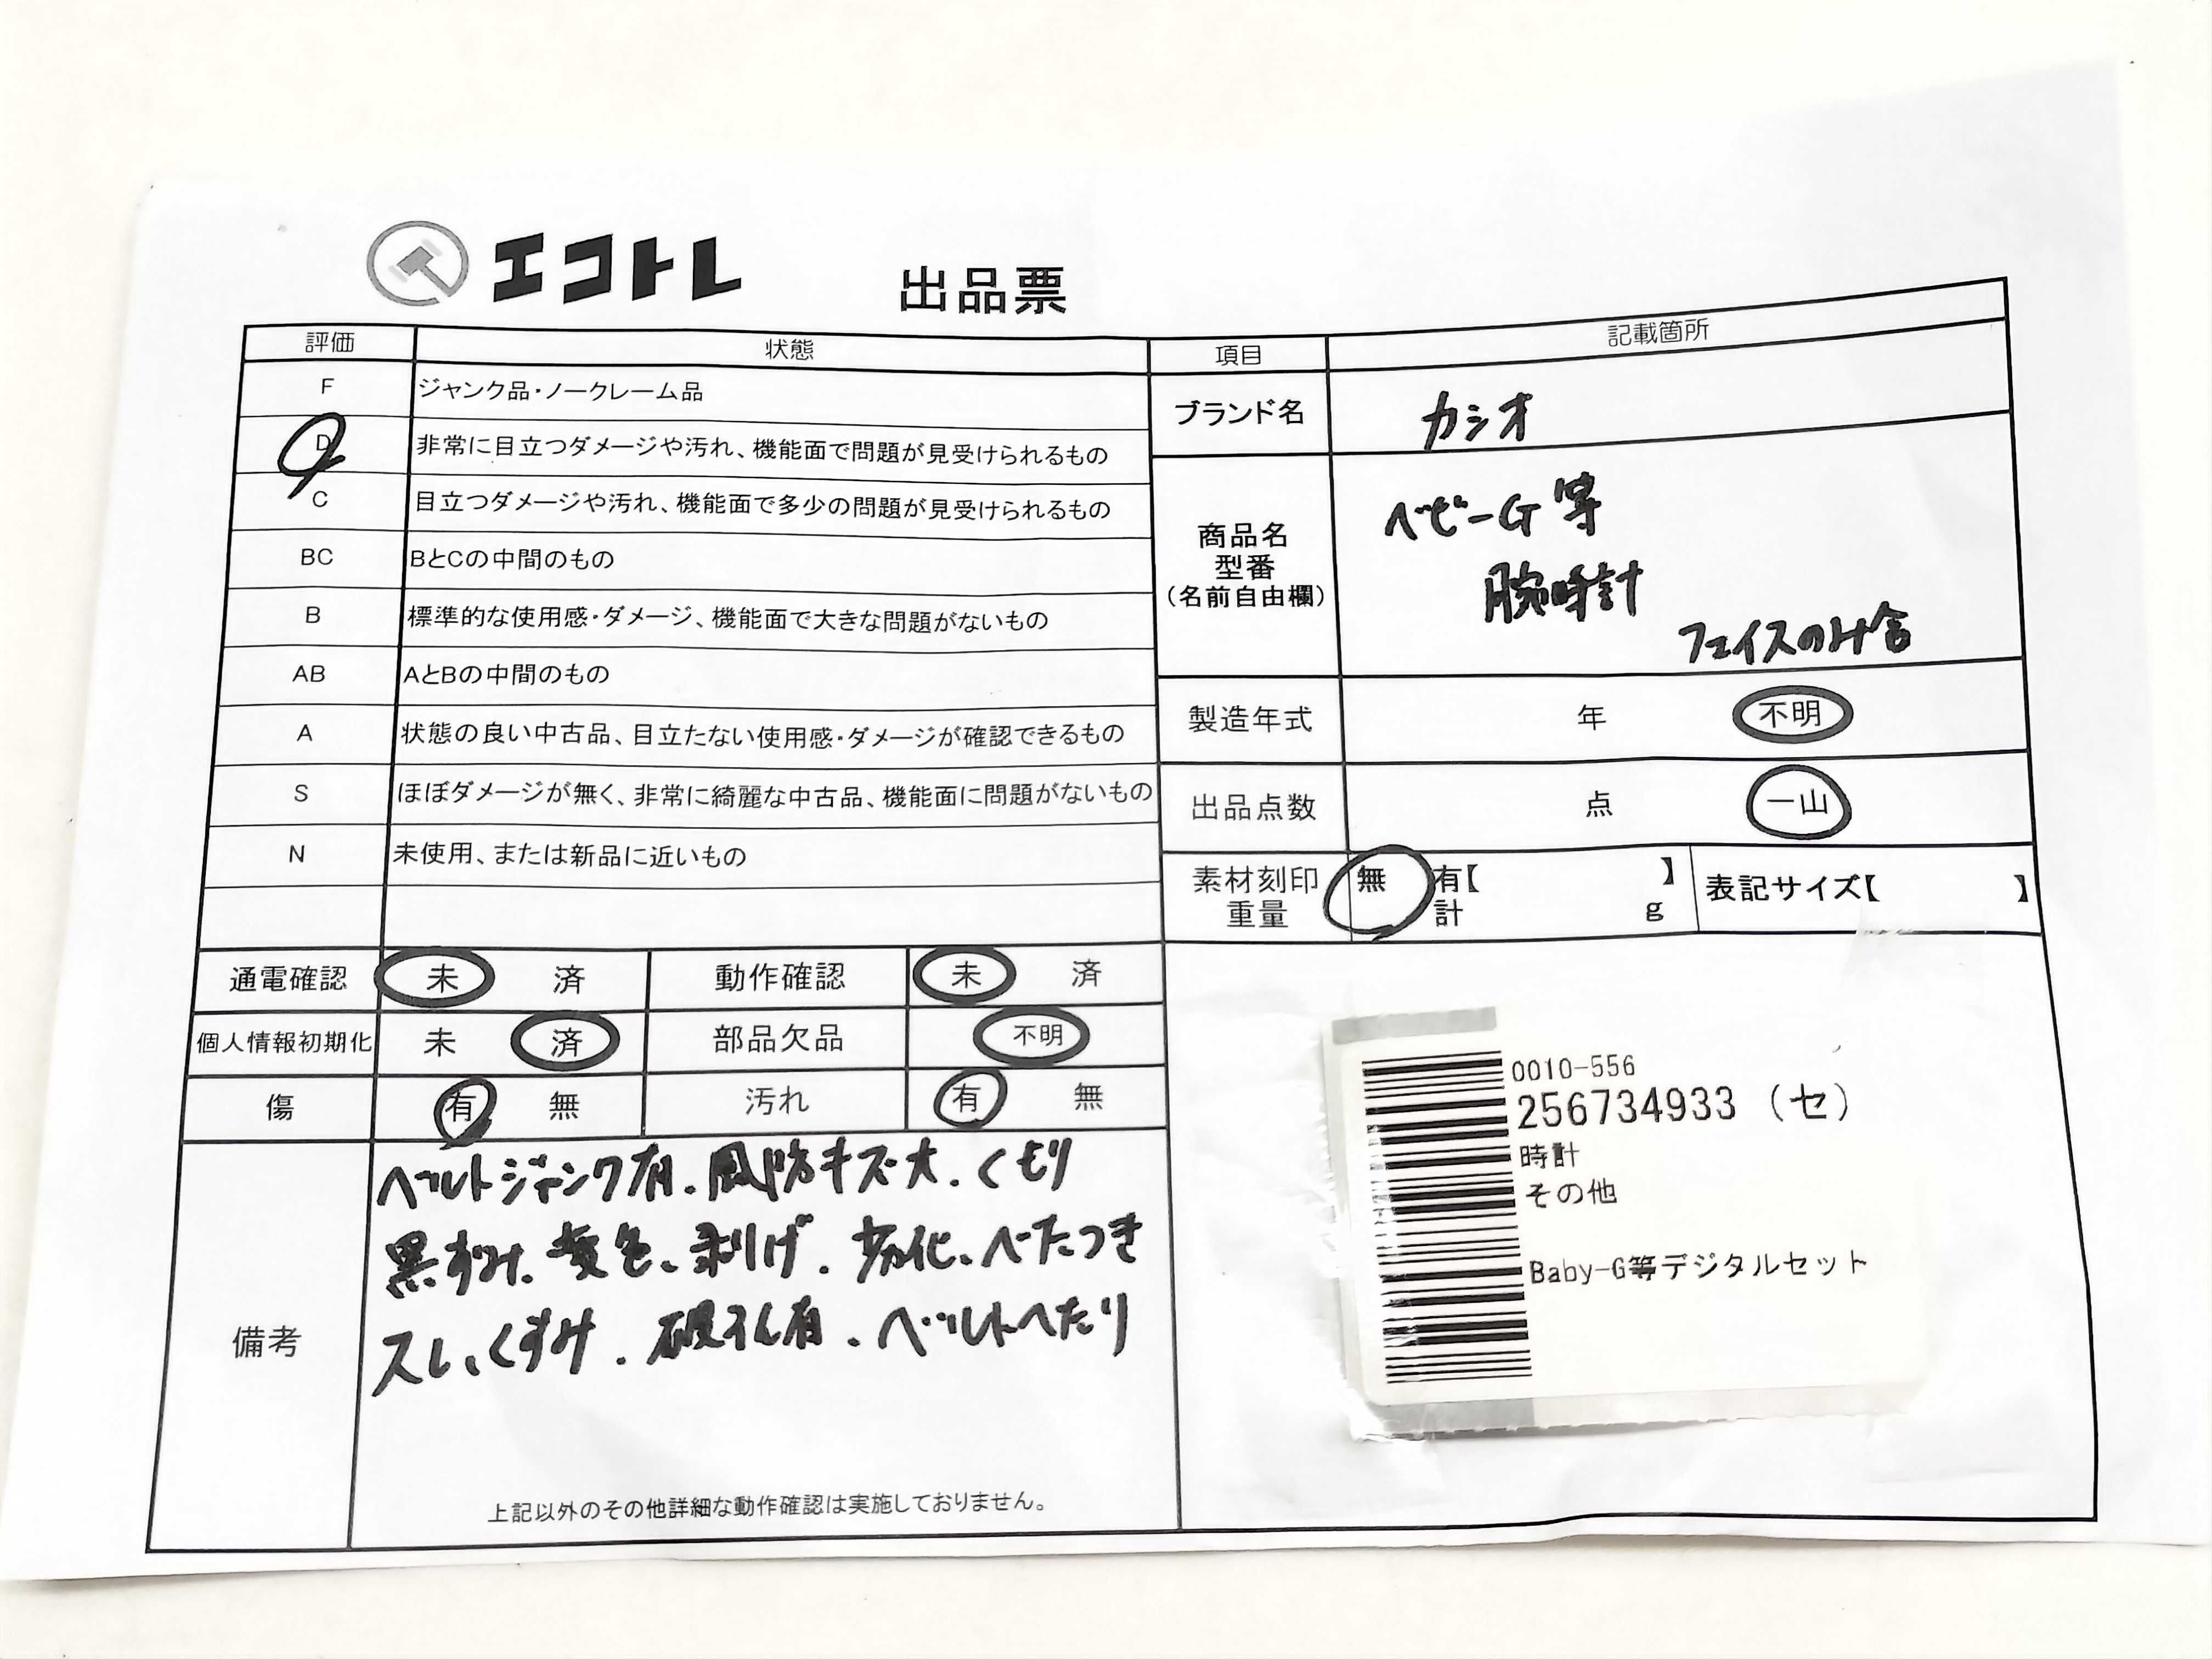 エコトレ 出品票
評価 状態
F ジャンク品・ノークレーム品
D 非常に目立つダメージや汚れ、機能面で問題が見受けられるもの
C 目立つダメージや汚れ、機能面で多少の問題が見受けられるもの
BC BとCの中間のもの
B 標準的な使用感・ダメージ、機能面で大きな問題がないもの
AB AとBの中間のもの
A 状態の良い中古品、目立たない使用感・ダメージが確認できるもの
S ほぼダメージが無く、非常に綺麗な中古品、機能面に問題がないもの
N 未使用、または新品に近いもの
通電確認 未 済 動作確認 未 済
個人情報初期化 未 済 部品欠品 不明
傷 有 無 汚れ 有 無
備考
ベルトジャンク有.風防キズ大.くもり
黒ずみ.変色、剥げ.劣化、べたつき
スレ、くすみ.破れ有.ベルトへたり
上記以外のその他詳細な動作確認は実施しておりません。
項目 記載箇所
ブランド名 カシオ
商品名
型番
(名前自由欄)
ベビーG等
腕時計
フェイスのみ含
製造年式 年 不明
出品点数 点 一山
素材刻印 無 有【 】
重量 計 g
表記サイズ【 】
0010-556
256734933 (セ)
時計
その他
Baby-G等デジタルセット